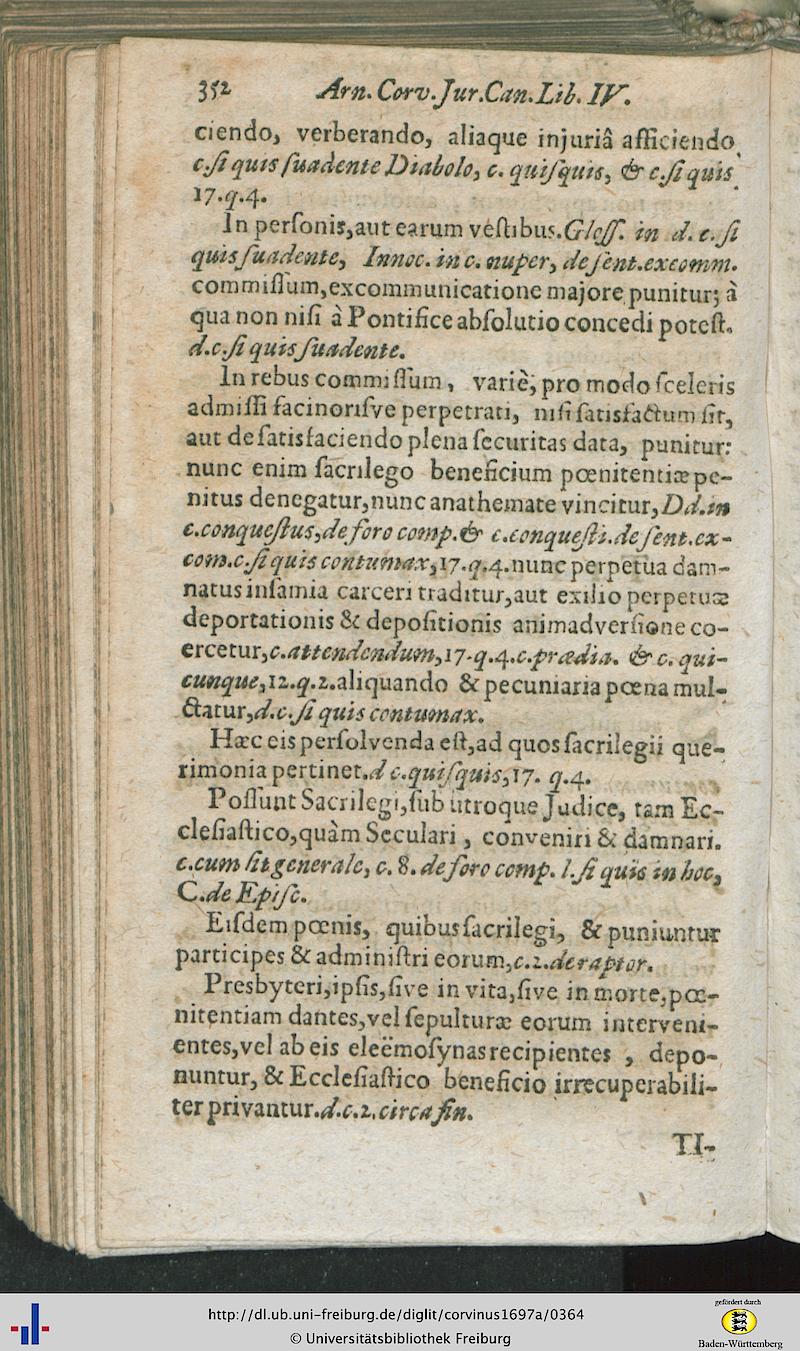 352 Arn. Corv. Jur. Can. Lib. IV.
ciendo, verberando, aliaque injuriâ afficiendo,
c. ſi quis ſuadente Diabolo, c. quiſquis, & c. ſi quis
17. q. 4.
In perſonis, aut earum veſtibus. Gloſſ. in d. c. ſi
quis ſuadente, Innoc. in c. nuper, de ſent. excomm.
commiſſum, excommunicatione majore punitur; à
qua non niſi à Pontifice abſolutio concedi poteſt.
d. c. ſi quis ſuadente.
In rebus commiſſum, variè; pro modo ſceleris
admiſſi facinoriſve perpetrati, niſi ſatisfactum ſit,
aut de ſatisfaciendo plena ſecuritas data, punitur:
nunc enim ſacrilego beneficium pœnitentiæ pe-
nitus denegatur, nunc anathemate vincitur, Dd. in
c. conqueſtus, de foro comp. & c. conqueſti. de ſent. ex-
com. c. ſi quis contumax, 17. q. 4. nunc perpetua dam-
natus infamia carceri traditur, aut exilio perpetuæ
deportationis & depoſitionis animadverſione co-
ercetur, c. attendendum, 17. q. 4. c. prædia. & c. qui-
cunque, 12. q. 2. aliquando & pecuniaria pœna mul-
ctatur, d. c. ſi quis contumax.
Hæc eis perſolvenda eſt, ad quos ſacrilegii que-
rimonia pertinet. d c. quiſquis, 17. q. 4.
Poſſunt Sacrilegi, ſub utroque Judice, tam Ec-
cleſiaſtico, quàm Seculari, conveniri & damnari.
c. cum ſit generale, c. 8. de foro comp. l. ſi quis in hoc,
C. de Epiſc.
Eiſdem pœnis, quibus ſacrilegi, & puniuntur
participes & adminiſtri eorum, c. 2. de raptor.
Presbyteri, ipſis, ſive in vita, ſive in morte, pœ-
nitentiam dantes, vel ſepulturæ eorum interveni-
entes, vel ab eis eleëmoſynas recipientes, depo-
nuntur, & Eccleſiaſtico beneficio irrecuperabili-
ter privantur. d. c. 2. circa fin.
TI-
http://dl.ub.uni-freiburg.de/diglit/corvinus1697a/0364
© Universitätsbibliothek Freiburg
gefördert durch
Baden-Württemberg